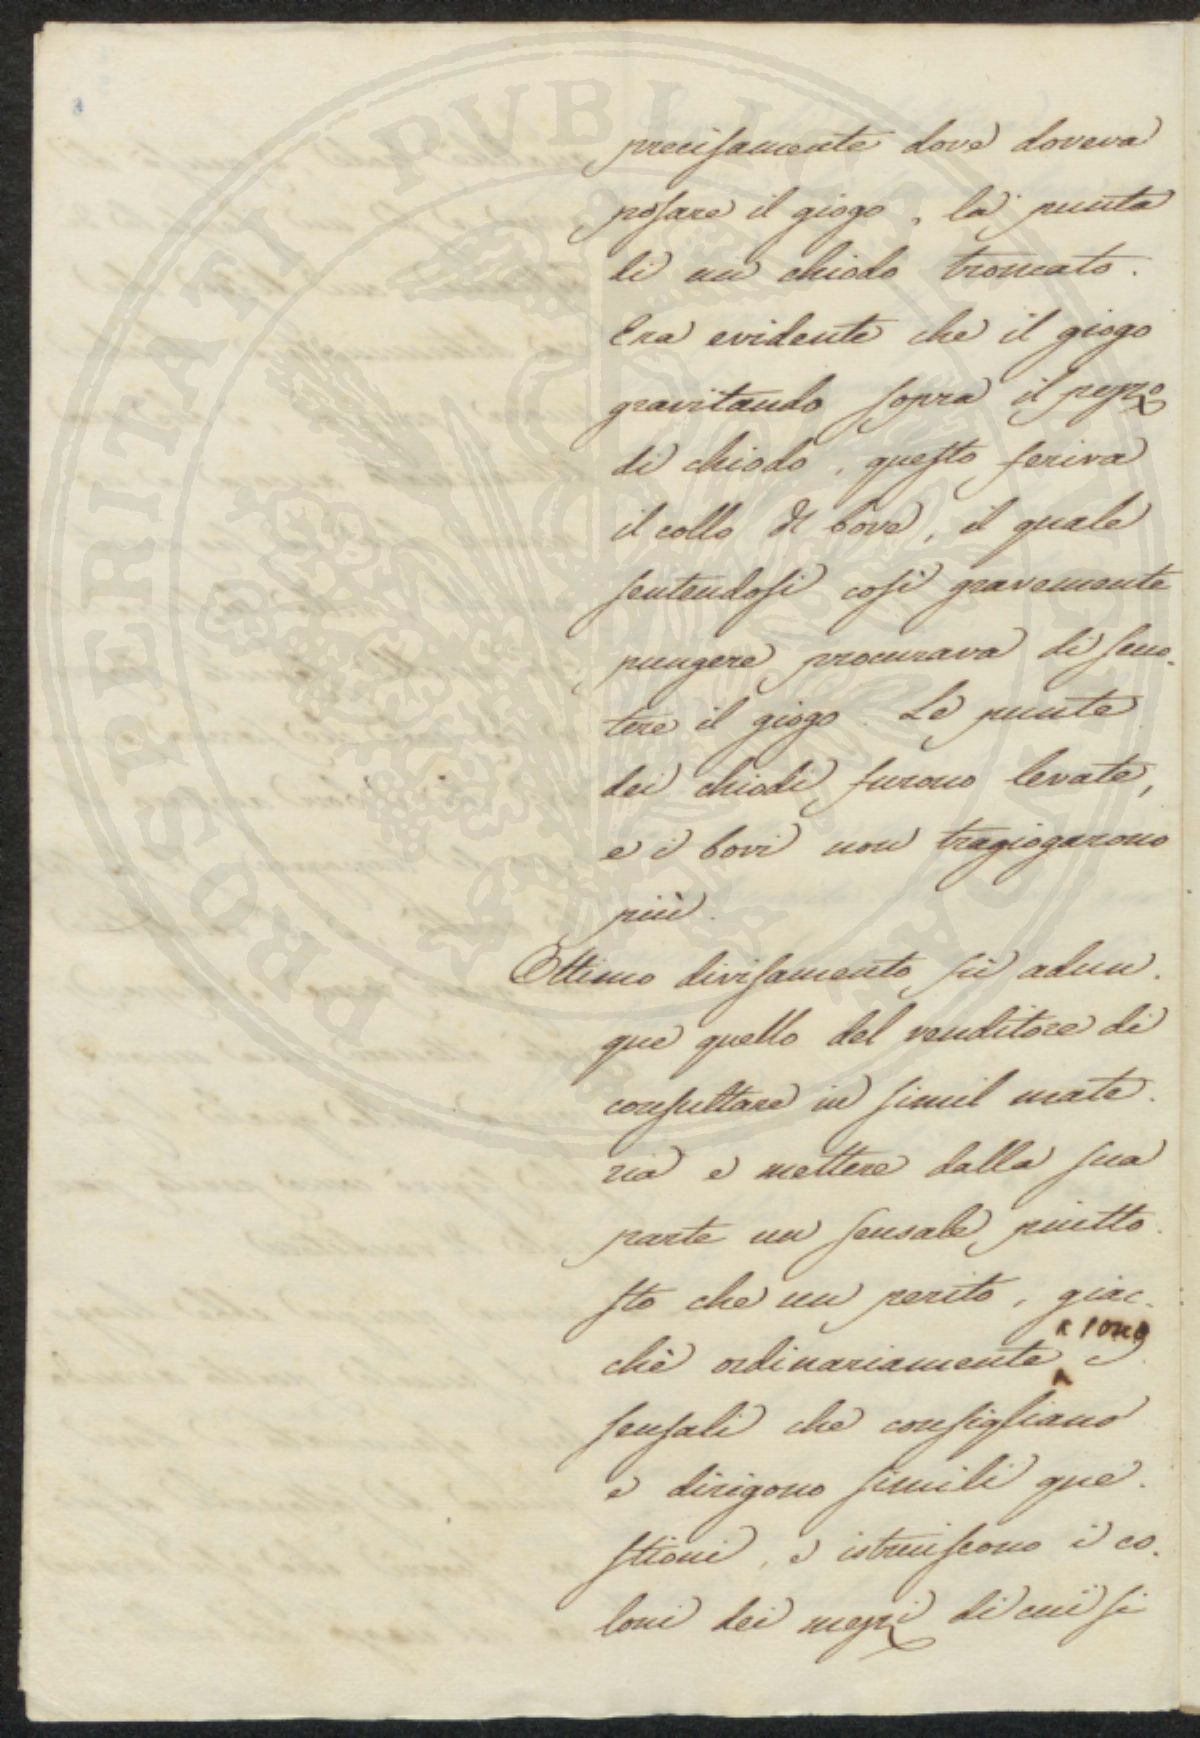 precisamente dove doveva
posare il giogo, la punta
di un chiodo troncato.
Era evidente che il giogo
gravitando sopra il pezzo
di chiodo, questo feriva
il collo al bove, il quale
sentendosi così gravemente
pungere procurava di scuo-
tere il giogo. Le punte
dei chiodi furono levate,
e i bovi non tragiogarono
più.
Ottimo divisamento fù adun-
que quello del venditore di
consultare in simil mate-
ria e mettere dalla sua
parte un sensale piutto-
sto che un perito, giac-
sono
chè ordinariamente i
sensali che consigliano
e dirigono simili que-
stioni, e istruiscono i co-
loni dei mezzi di cui si
PROSPERITATI PUBLICAE AUGENDAE